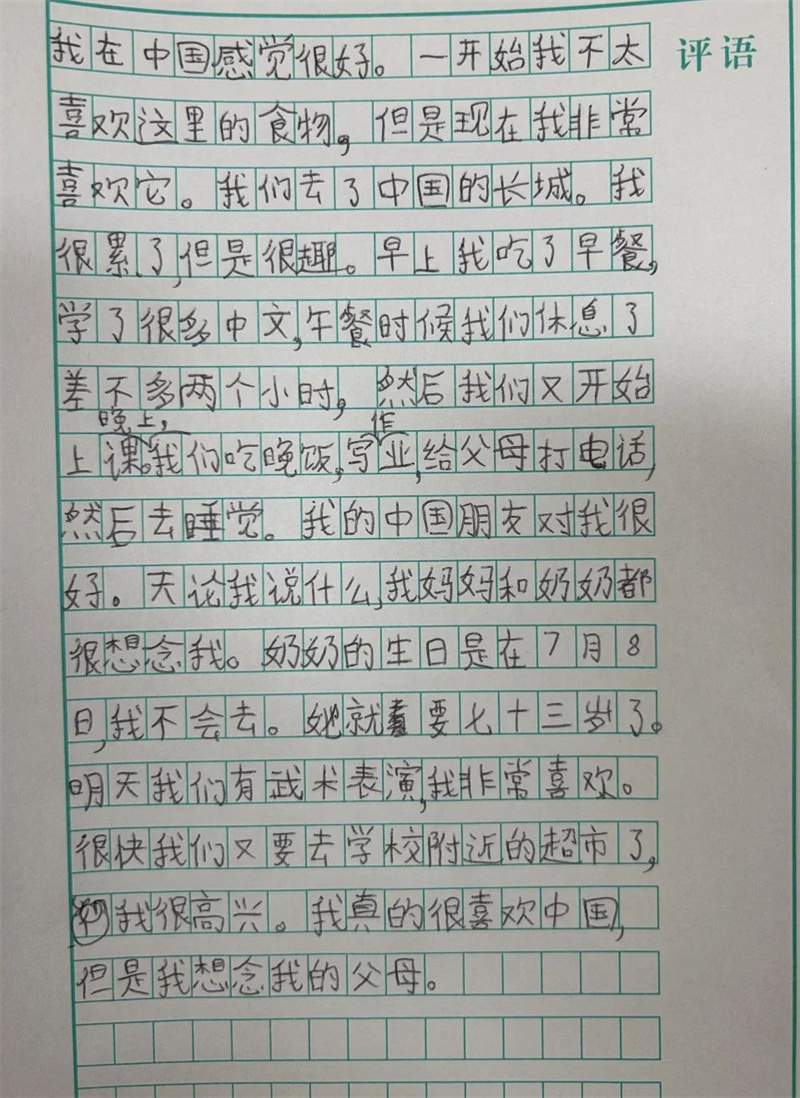 我在中国感觉很好。一开始我不太
评语
喜欢这里的食物,但是现在我非常
喜欢它。我们去了中国的长城。我
很累了,但是很趣。早上我吃了早餐,
学了很多中文,午餐时候我们休息了
差不多两个小时,然后我们又开始
晚上,
作
上课。我们吃晚饭,写业,给父母打电话,
然后去睡觉。我的中国朋友对我很
好。天论我说什么,我妈妈和奶奶都
很想念我。奶奶的生日是在7月8
日,我不会去。她就要七十三岁了。
明天我们有武术表演,我非常喜欢。
很快我们又要去学校附近的超市了,
我很高兴。我真的很喜欢中国,
但是我想念我的父母。